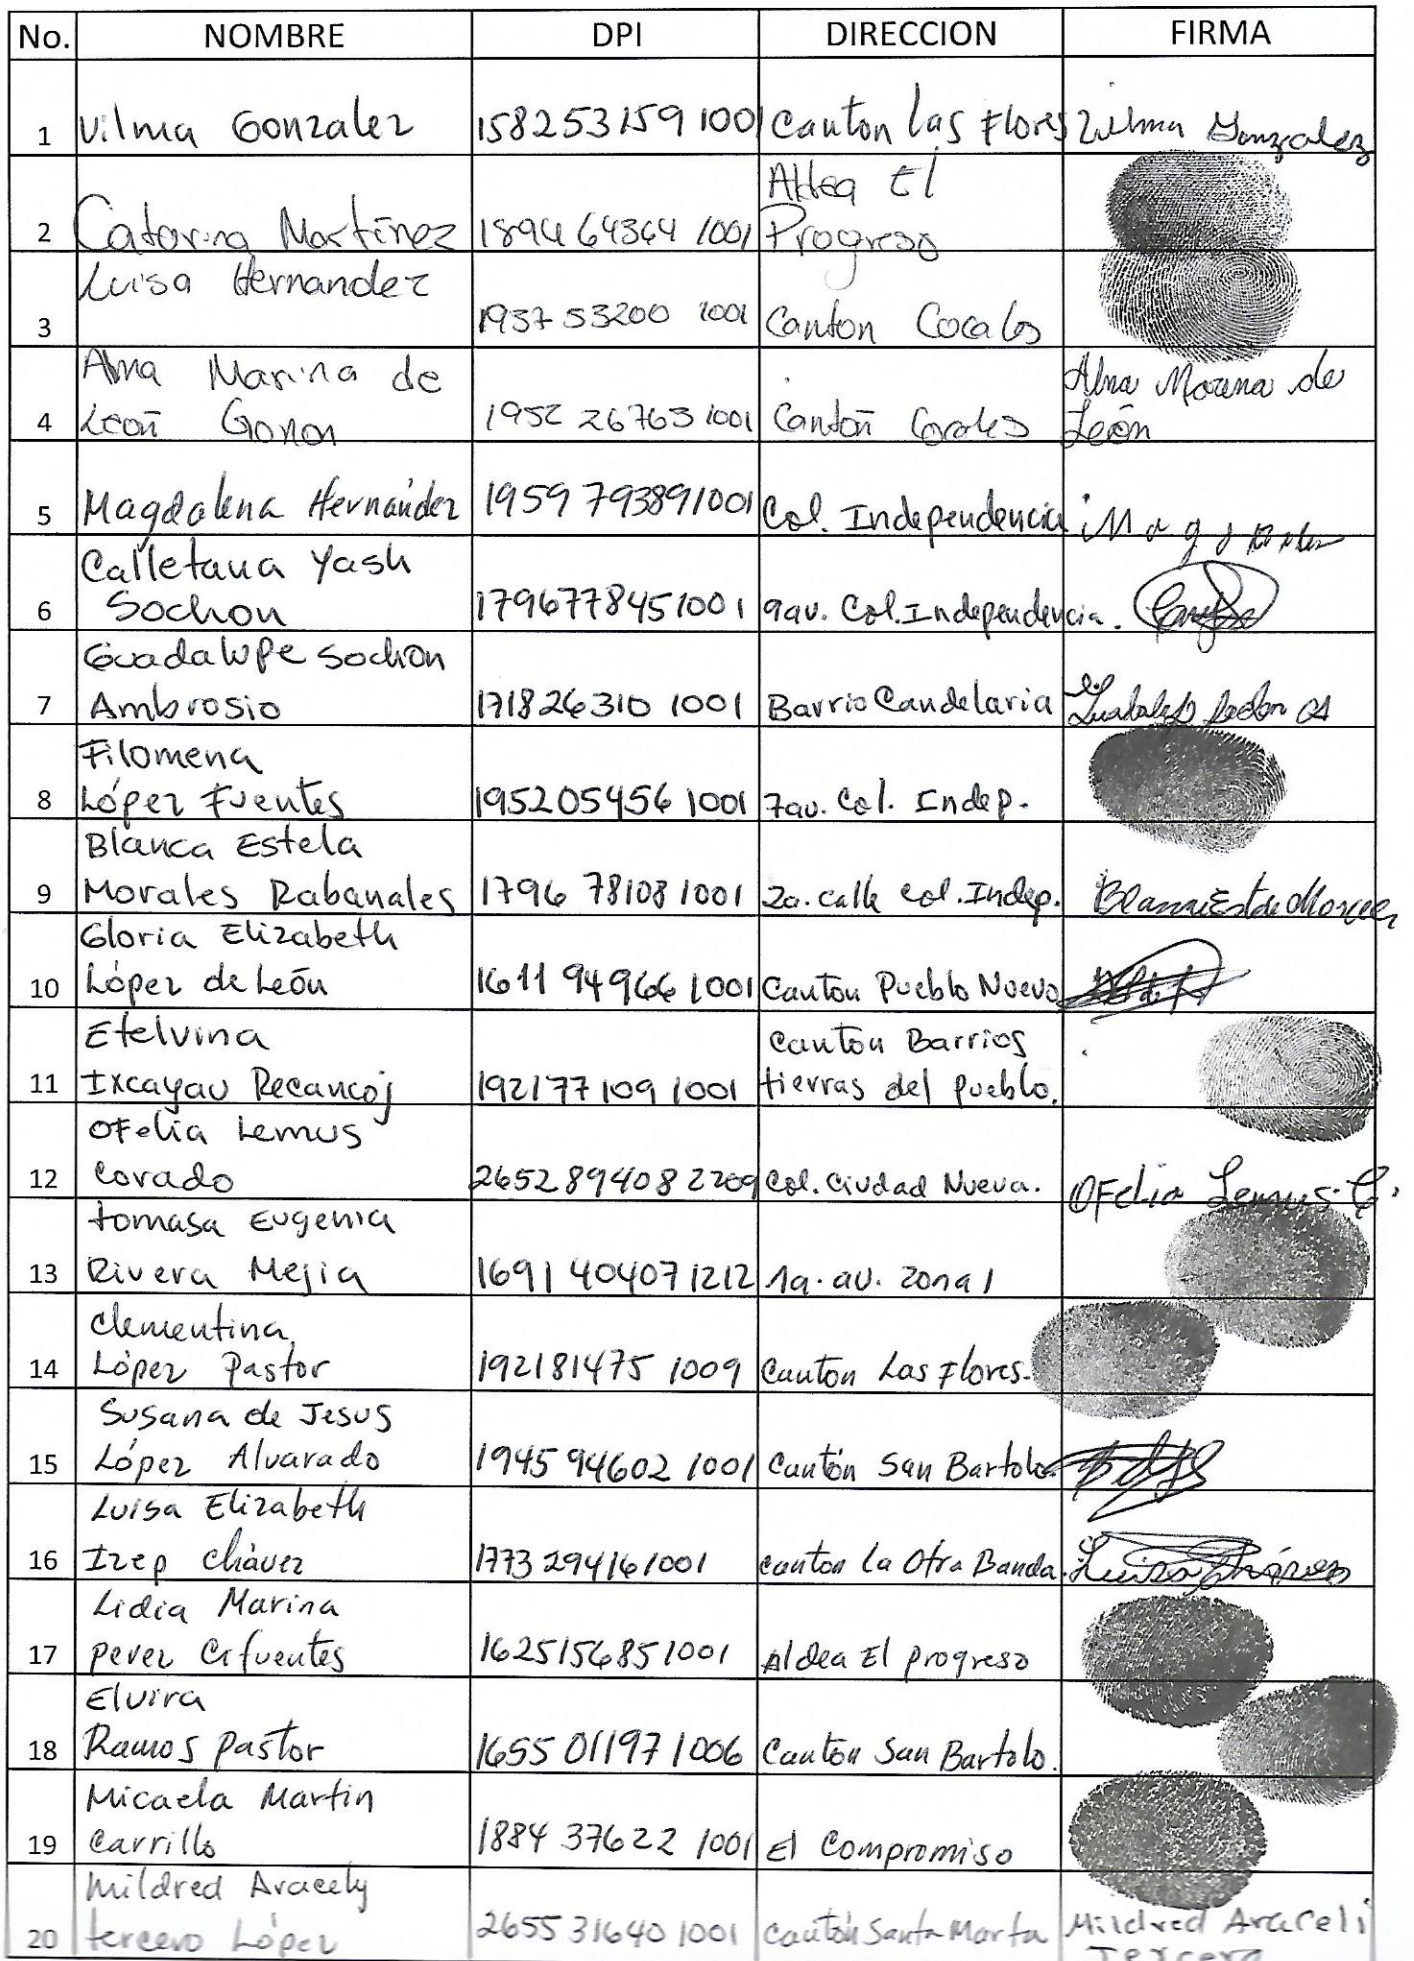 No. NOMBRE DPI DIRECCION FIRMA
1 Vilma Gonzalez 158253159 1001 Canton las Flores Vilma Gonzalez
Aldea El
2 Catarina Martinez 1894 64364 1001 Progreso
Luisa Hernandez
3 1937 53200 1001 Canton Cocales
Alma Marina de Alma Marina de
4 León Gonon 1952 26763 1001 Canton Cocales León
5 Magdalena Hernández 1959 79389 1001 Col. Independencia
Calletana Yash
6 Sochon 1796778451001 9av. Col. Independencia.
Guadalupe Sochon
7 Ambrosio 171826310 1001 Barrio Candelaria
Filomena
8 López Fuentes 195205456 1001 7av. Col. Indep.
Blanca Estela
9 Morales Rabanales 1796 78108 1001 2a. calle Col. Indep. Blanca Estela Morales
Gloria Elizabeth
10 López de León 1611 94966 1001 Canton Pueblo Nuevo
Etelvina Canton Barrios
11 Ixcayau Recancoj 192177109 1001 tierras del pueblo.
Ofelia Lemus
12 Corado 2652894082209 Col. Ciudad Nueva. OFelia Lemus C.
tomasa Eugenia
13 Rivera Mejia 1691 40407 1212 1a. av. zona 1
Clementina
14 López Pastor 192181475 1009 Canton Las Flores.
Susana de Jesus
15 López Alvarado 1945 94602 1001 Cantón San Bartolo
Luisa Elizabeth
16 Izep Chávez 1773 29416 1001 Canton La Otra Banda. Luisa Chávez
Lidia Marina
17 perez Cifuentes 1625156851001 Aldea El progreso
Elvira
18 Ramos pastor 1655 01197 1006 Canton San Bartolo.
Micaela Martin
19 Carrillo 1884 37622 1001 El Compromiso
Mildred Aracely
20 tercero López 2655 31640 1001 Cantón Santa Marta Mildred Araceli
Tercero